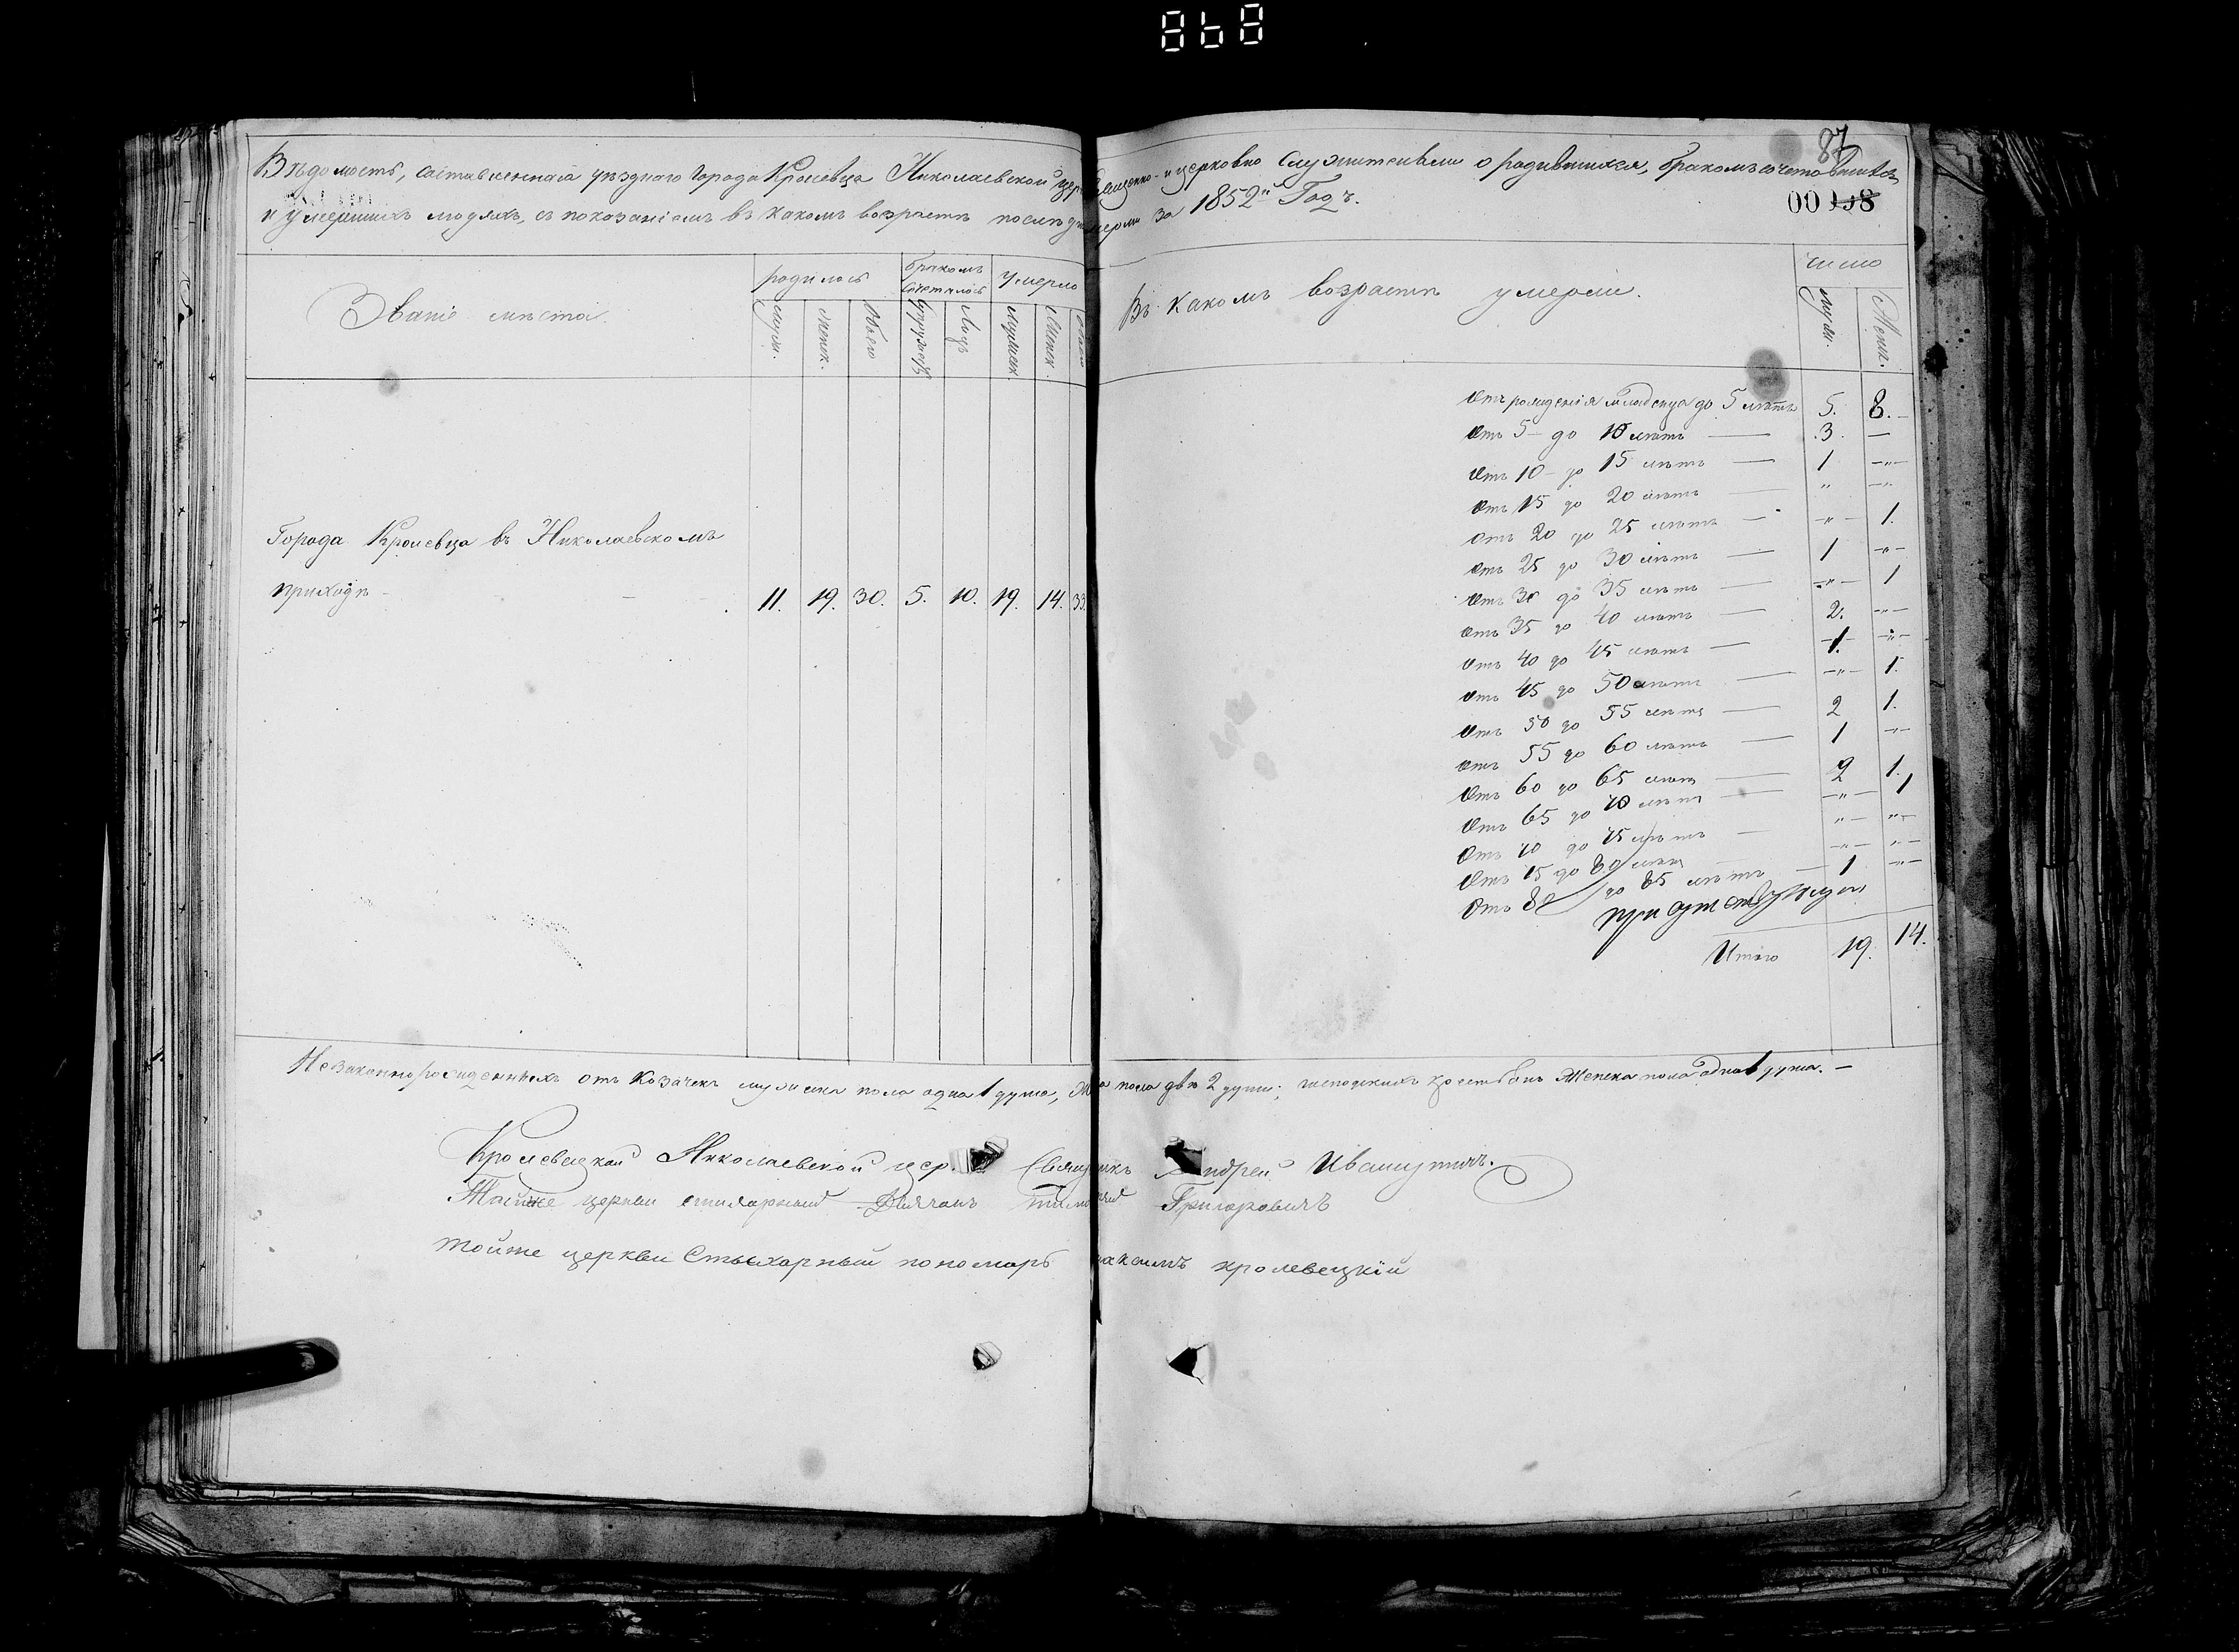 868
87
00118
Вѣдомость, составленная уѣзднаго города Кролевца Николаевской церкви Священно- и церковно служителями о родившихся, бракомъ сочетавшихся
и умершихъ людяхъ, съ показаніемъ въ какомъ возрастѣ послѣдніе умерли за 1852й Годъ.
Званіе мѣста.
родилось
бракомъ сочеталось
Умерло
муж.
женск.
Обоего
Супружест
Лицъ
Мужеск.
Женск.
Обоего
Въ какомъ возрастѣ умерли.
число
Муж.
Женск.
Города Кролевца въ Николаевскомъ
приходѣ - - . 11. 19. 30. 5. 10. 19. 14. 33.
Отъ рожденія младенца до 5 лѣтъ 5. 8. -
Отъ 5 - до 10 лѣтъ — 3. —
Отъ 10 - до 15 лѣтъ — 1 -"-
Отъ 15 до 20 лѣтъ — " -"-
Отъ 20 до 25 лѣтъ — -"- 1.
Отъ 25 до 30 лѣтъ — 1 -"-
Отъ 30 до 35 лѣтъ — -"- 1
Отъ 35 до 40 лѣтъ — 2. -"-
Отъ 40 до 45 лѣтъ — 1. -"-
Отъ 45 до 50 лѣтъ — -"- 1.
Отъ 50 до 55 лѣтъ — 2 1.
Отъ 55 до 60 лѣтъ — 1 -"-
Отъ 60 до 65 лѣтъ — 2 1.
Отъ 65 до 70 лѣтъ — -"- 1
Отъ 70 до 75 лѣтъ — "- "-
Отъ 75 до 80 лѣтъ -"- "-
Отъ 80 до 85 лѣтъ — 1 -"-
Итого 19. 14.
Незаконнорожденныхъ отъ Козачекъ мужеска пола одна 1 душа, Женска пола двѣ 2 души; господскихъ крестьянъ Женска пола одна 1 душа. —
Кролевецкой Николаевской цер. Священникъ Андрей Ивашутичъ.
Тойже церкви стихарный Дьячокъ Григоровичъ
Тойже церкви Стыхарный пономарь Максимъ Кролевецкій